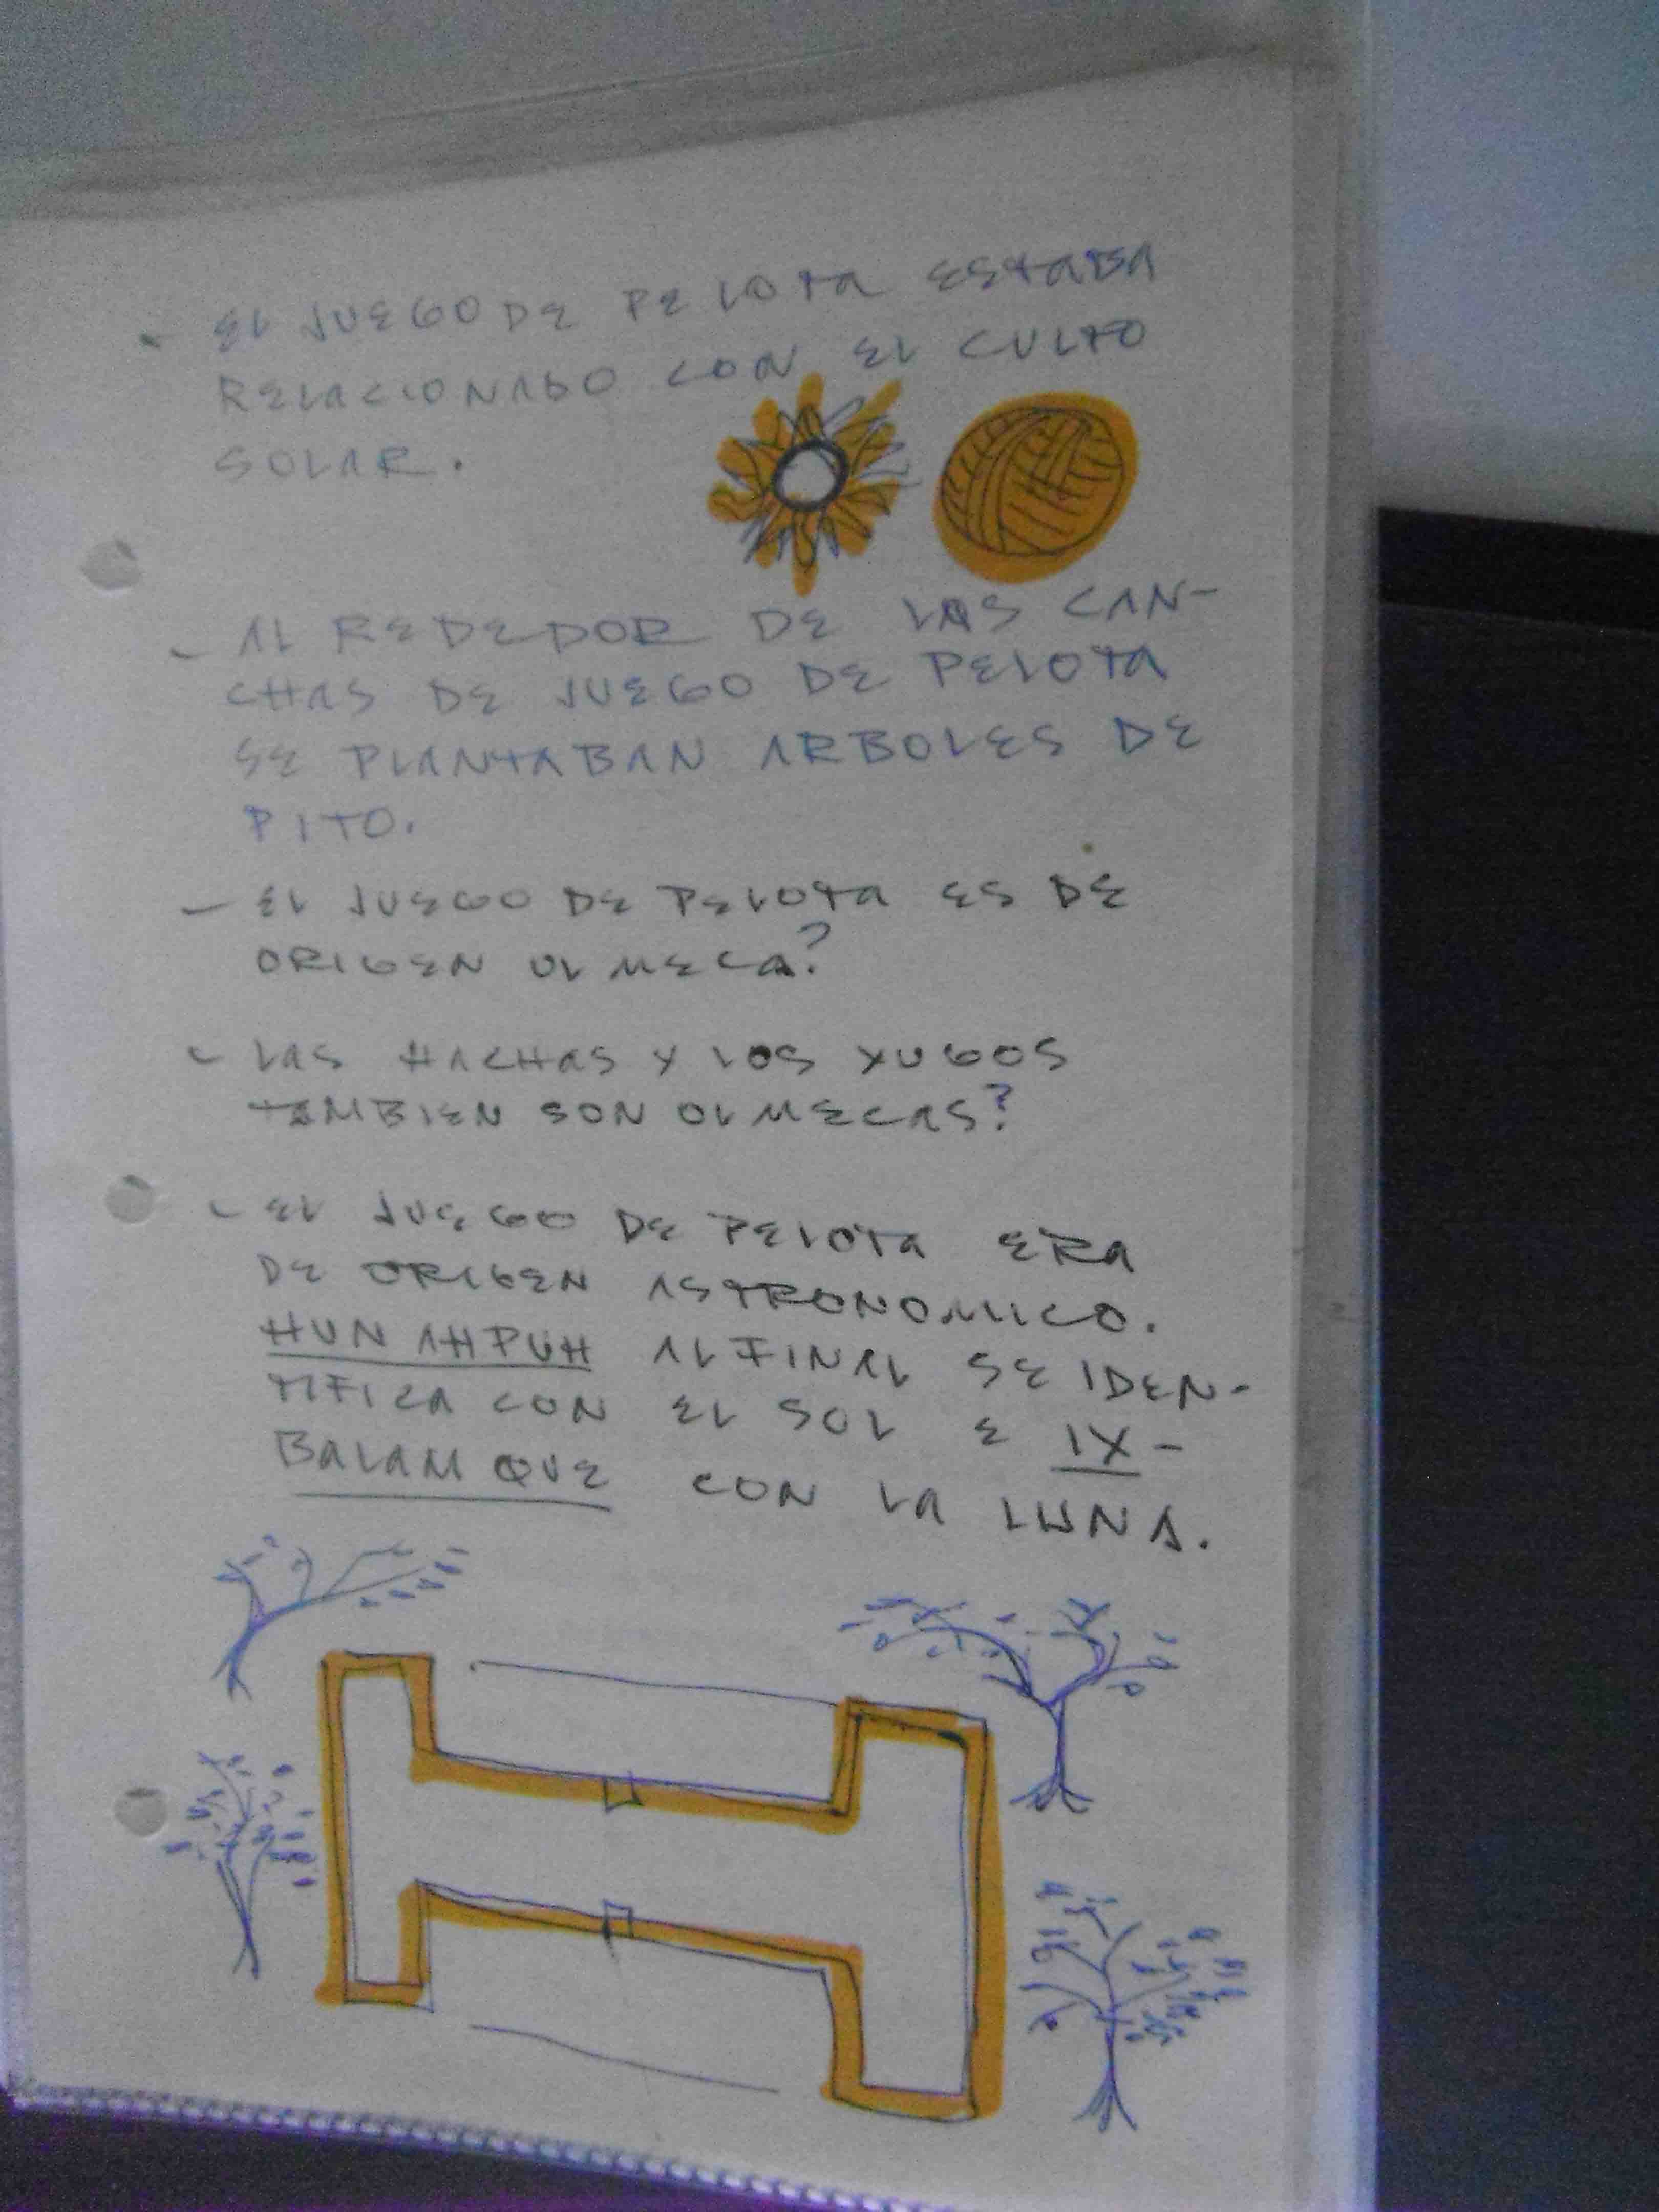 - EL JUEGO DE PELOTA ESTABA
RELACIONADO CON EL CULTO
SOLAR.
- AL REDEDOR DE LAS CAN-
CHAS DE JUEGO DE PELOTA
SE PLANTABAN ARBOLES DE
PITO.
- EL JUEGO DE PELOTA ES DE
ORIGEN OLMECA?
- LAS HACHAS Y LOS YUGOS
TAMBIEN SON OLMECAS?
- EL JUEGO DE PELOTA ERA
DE ORIGEN ASTRONOMICO.
HUN AHPUH AL FINAL SE IDEN-
TIFICA CON EL SOL E IX-
BALAM QUE CON LA LUNA.